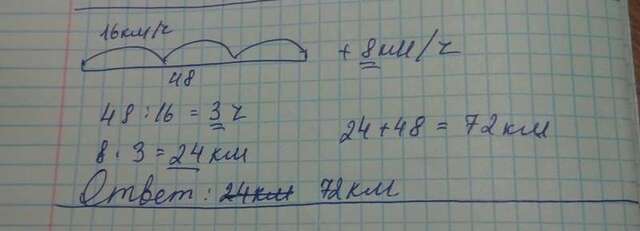 16км/ч
+ 8км/ч
48
48 : 16 = 3 ч
8 · 3 = 24 км
24 + 48 = 72 км
Ответ : 24км 72 км